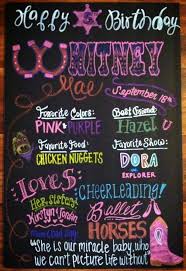 Happy 5 Birthday
WHITNEY
Mae
September 18th
Favorite Colors:
PINK & PURPLE
Best Friend:
Hazel
Favorite Food:
CHICKEN NUGGETS
Favorite Show:
DORA
THE
EXPLORER
LOVES
Her Sisters:
CHEERLEADING!
Ballet
HORSES
"She is our miracle baby, who
we can't picture life without"